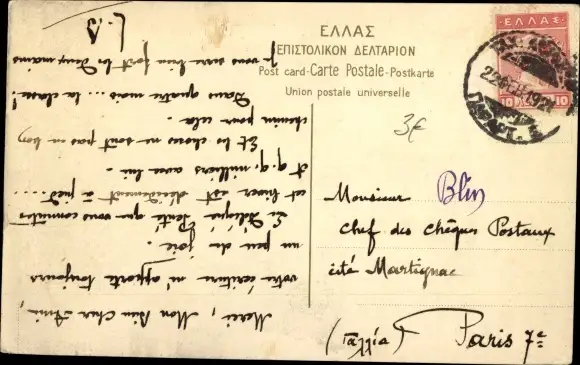 ΕΛΛΑΣ
ΕΠΙΣΤΟΛΙΚΟΝ ΔΕΛΤΑΡΙΟΝ
Post card-Carte Postale-Postkarte
Union postale universelle
ΕΛΛΑΣ
10 10
ΠΑΡΑΡΤ. 5
3€
Monsieur Blin
Chef des chèques Postaux
cité Martignac
Paris 7e
(Γαλλία)
Merci, Mon Bien Cher Ami,
votre écriture m'apporte toujours
un peu de joie.
Le Délégué Santé que vous connûtes
cet hiver est décidément à pied....
et q.q. milliers avec lui.
Et les choses ne sont pas en bon
chemin pour cela.
Dans quatre mois... la classe!
Je vous serre bien fort les deux mains